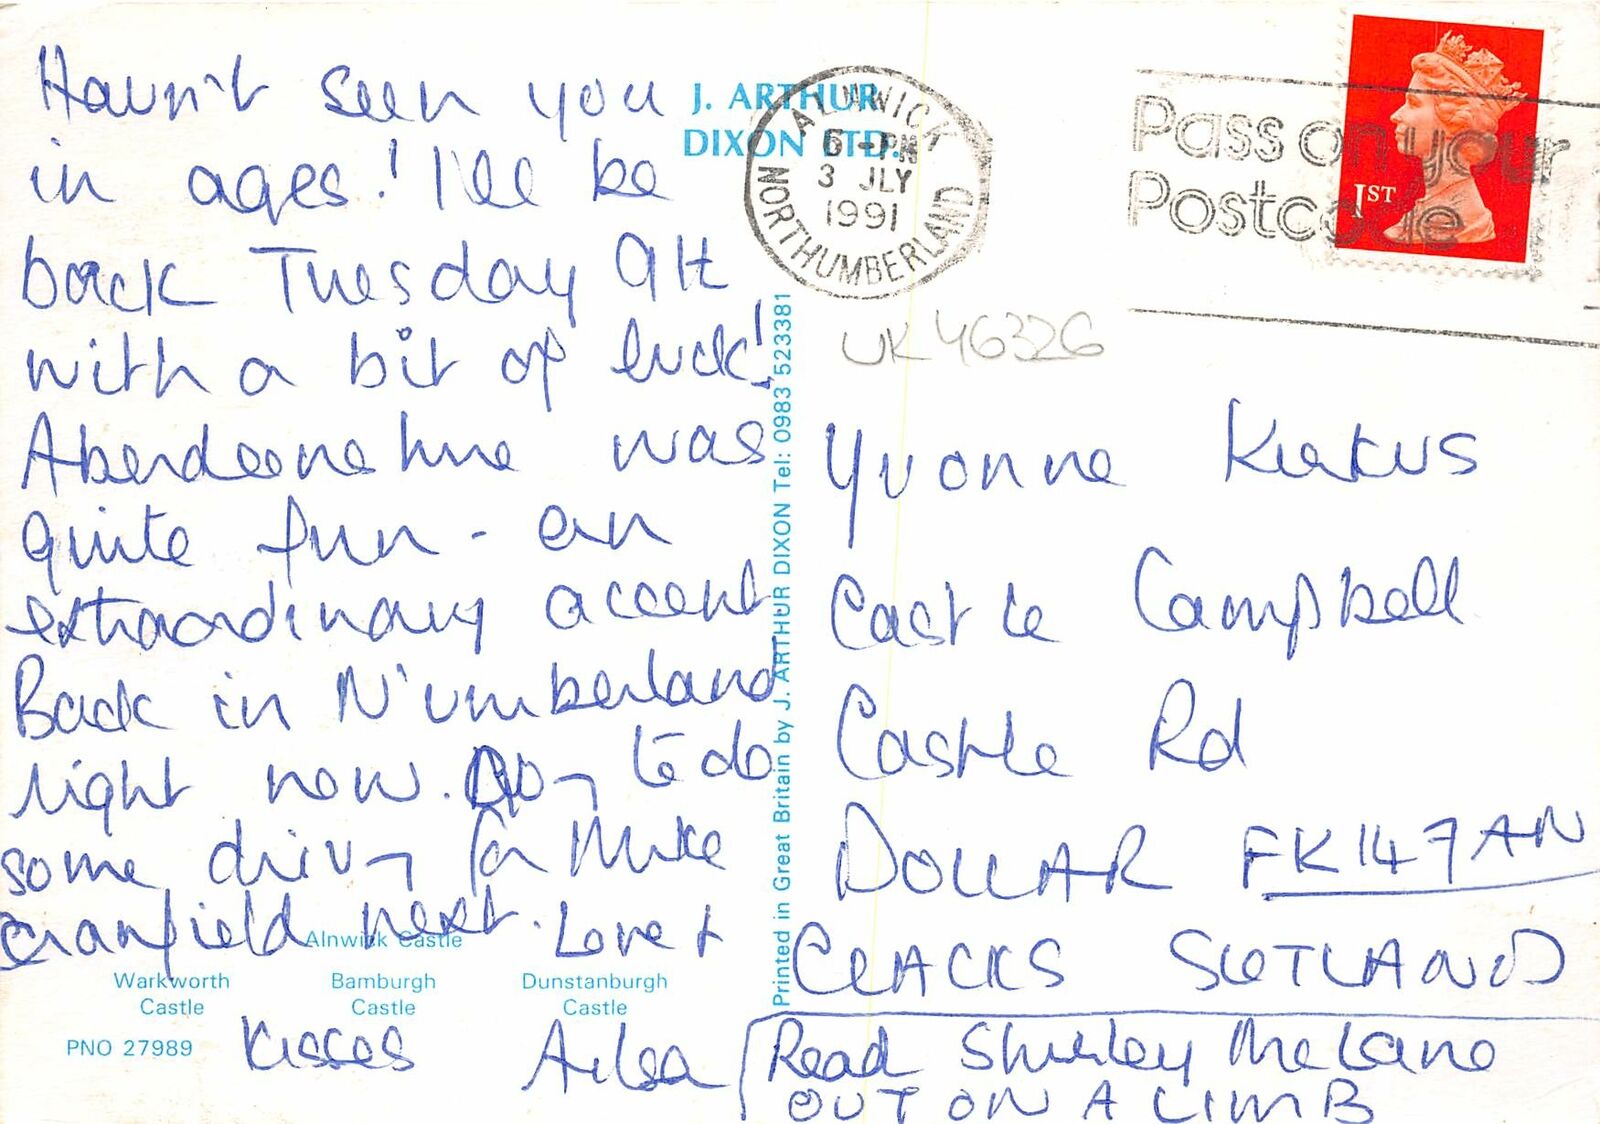 Havn't seen you
in ages! I'll be
back Tuesday 9th
with a bit of luck!
Aberdeenshire was
quite fun - an
extraordinary accent
Back in N'umberland
right now. to do
some driving for Mike
Cranfield next. Love +
Kisses Ailsa
J. ARTHUR
DIXON LTD.
ALNWICK
6-PM
3 JLY
1991
NORTHUMBERLAND
Pass on your
Postcode
1ST
UK 46326
Yvonne Kirkus
Castle Campbell
Castle Rd
DOLLAR FK147AN
CLACKS SCOTLAND
Read Shirley McLane
OUT ON A LIMB
Printed in Great Britain by J. ARTHUR DIXON Tel: 0983 523381
Alnwick Castle
Warkworth
Castle
Bamburgh
Castle
Dunstanburgh
Castle
PNO 27989